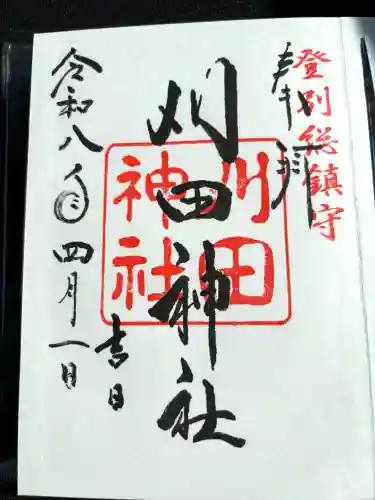 登別総鎮守
奉拝
刈田神社
刈田
神社
吉日
令和八年四月一日